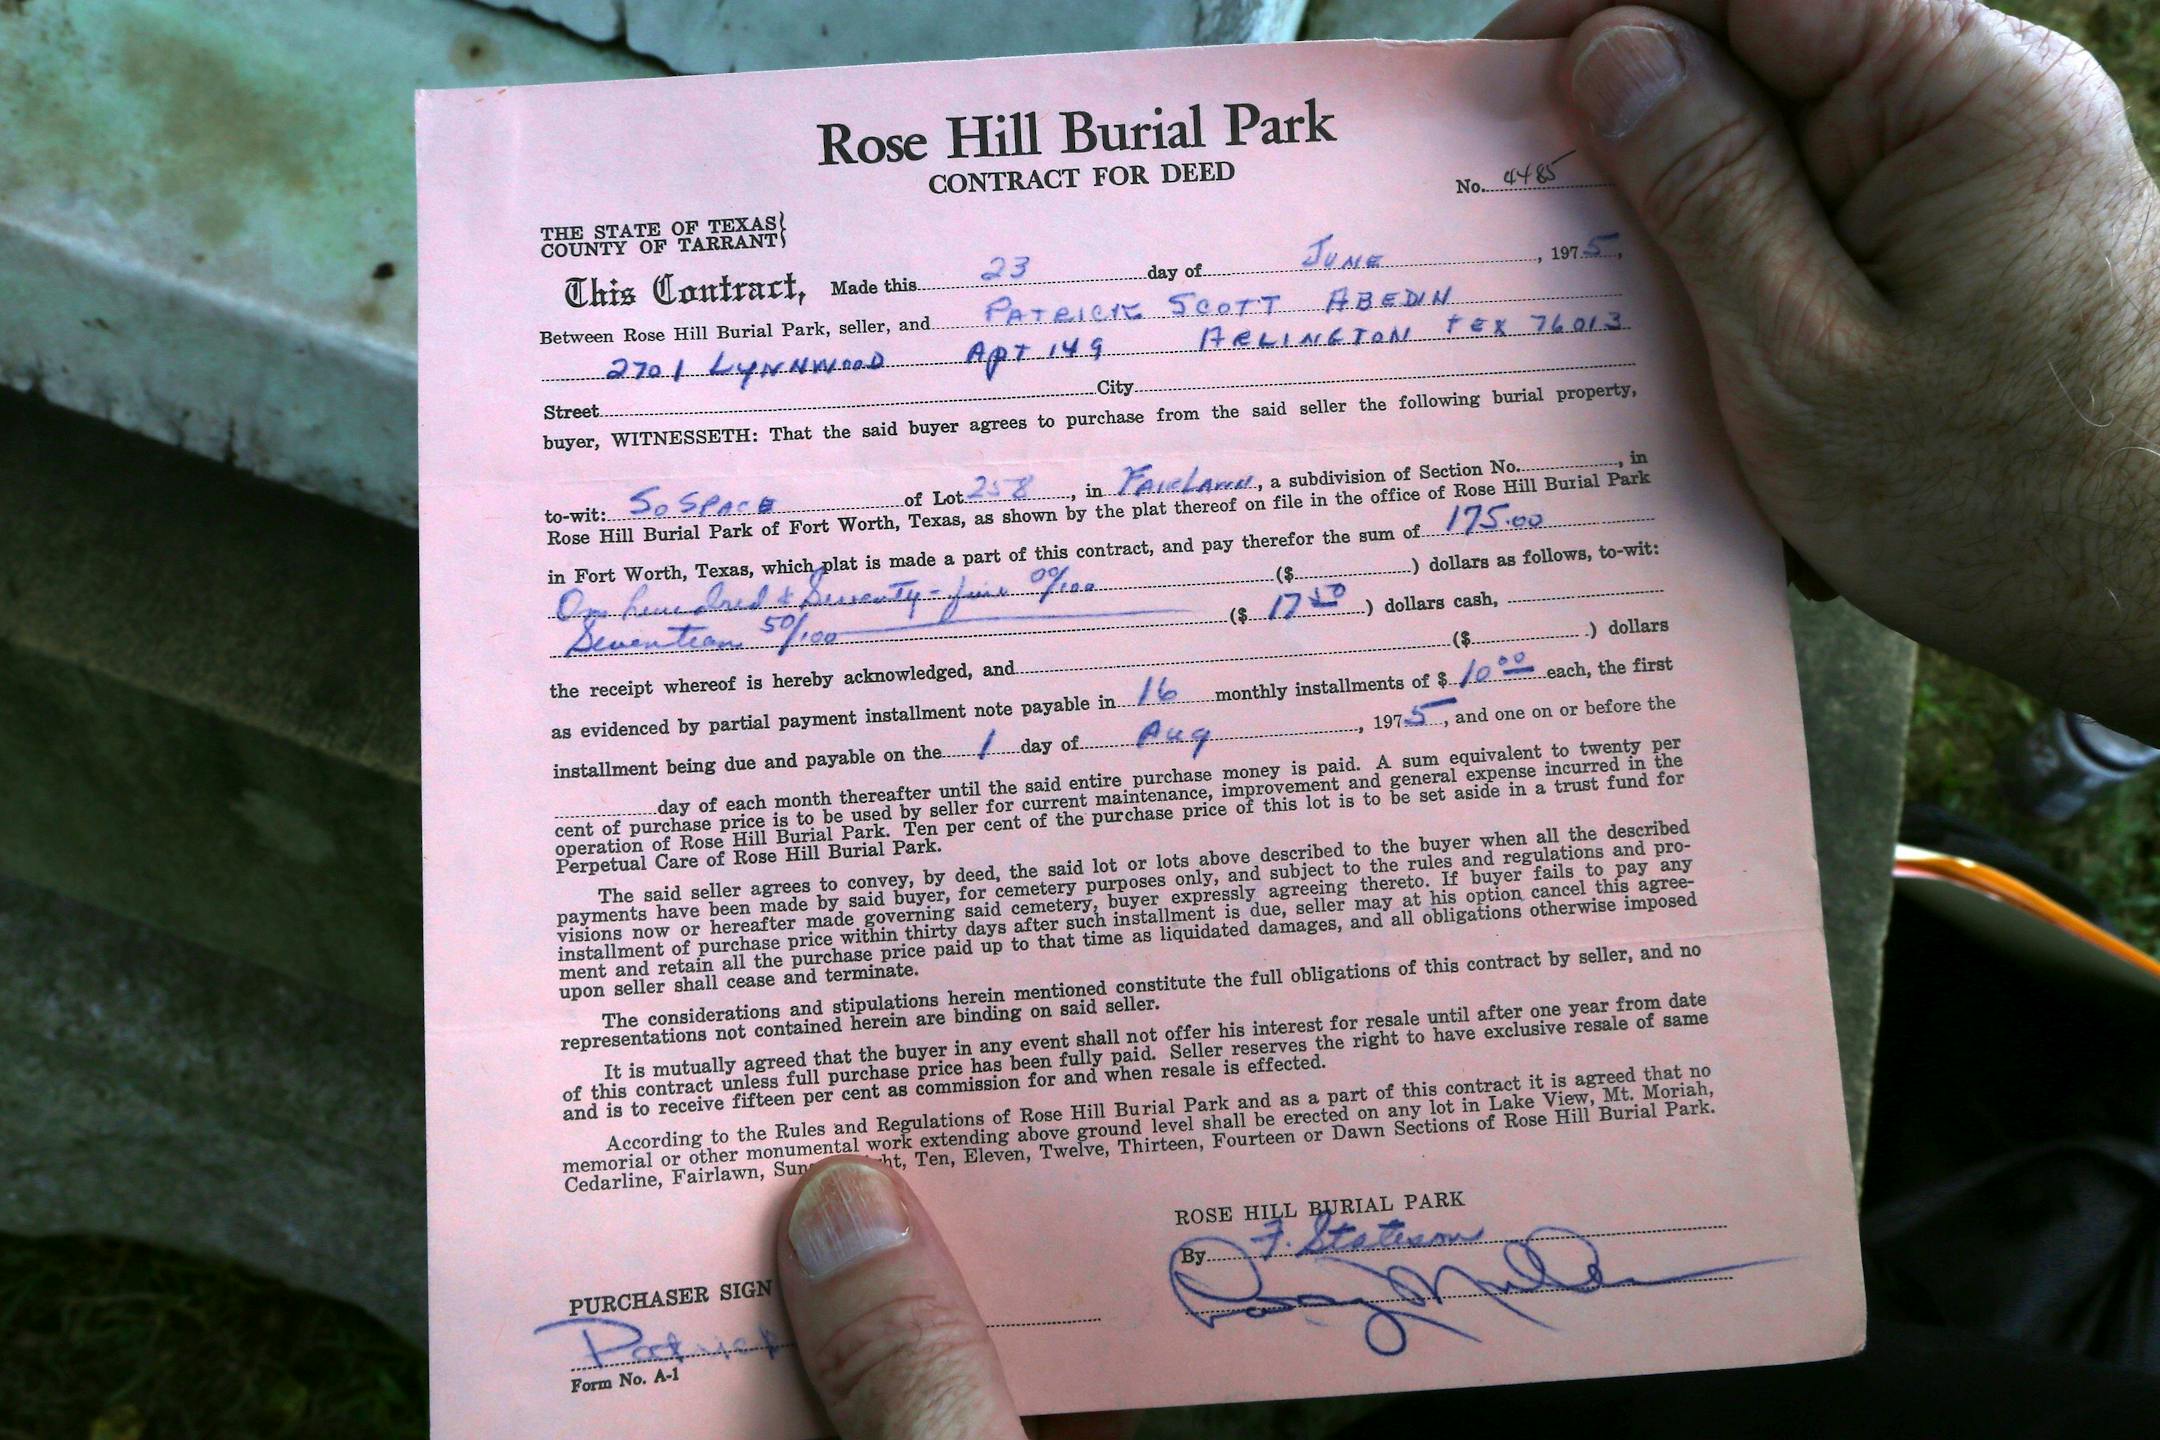 Rose Hill Burial Park
CONTRACT FOR DEED
No. 4485
THE STATE OF TEXAS}
COUNTY OF TARRANT}
This Contract, Made this 23 day of JUNE, 1975,
Between Rose Hill Burial Park, seller, and PATRICK SCOTT ABEDIN
2701 LYNNWOOD APT 149 ARLINGTON TEX 76013
Street City
buyer, WITNESSETH: That the said buyer agrees to purchase from the said seller the following burial property,
to-wit: SO SPACE of Lot 258, in FAIRLAWN, a subdivision of Section No. , in
Rose Hill Burial Park of Fort Worth, Texas, as shown by the plat thereof on file in the office of Rose Hill Burial Park
in Fort Worth, Texas, which plat is made a part of this contract, and pay therefor the sum of 175.00
One hundred & Seventy-five 00/100 ($ ) dollars as follows, to-wit:
Seventeen 50/100 ($ 17.50 ) dollars cash,
the receipt whereof is hereby acknowledged, and ($ ) dollars
as evidenced by partial payment installment note payable in 16 monthly installments of $ 10.00 each, the first
installment being due and payable on the 1 day of Aug, 1975, and one on or before the
day of each month thereafter until the said entire purchase money is paid. A sum equivalent to twenty per
cent of purchase price is to be used by seller for current maintenance, improvement and general expense incurred in the
operation of Rose Hill Burial Park. Ten per cent of the purchase price of this lot is to be set aside in a trust fund for
Perpetual Care of Rose Hill Burial Park.
The said seller agrees to convey, by deed, the said lot or lots above described to the buyer when all the described
payments have been made by said buyer, for cemetery purposes only, and subject to the rules and regulations and pro-
visions now or hereafter made governing said cemetery, buyer expressly agreeing thereto. If buyer fails to pay any
installment of purchase price within thirty days after such installment is due, seller may at his option cancel this agree-
ment and retain all the purchase price paid up to that time as liquidated damages, and all obligations otherwise imposed
upon seller shall cease and terminate.
The considerations and stipulations herein mentioned constitute the full obligations of this contract by seller, and no
representations not contained herein are binding on said seller.
It is mutually agreed that the buyer in any event shall not offer his interest for resale until after one year from date
of this contract unless full purchase price has been fully paid. Seller reserves the right to have exclusive resale of same
and is to receive fifteen per cent as commission for and when resale is effected.
According to the Rules and Regulations of Rose Hill Burial Park and as a part of this contract it is agreed that no
memorial or other monumental work extending above ground level shall be erected on any lot in Lake View, Mt. Moriah,
Cedarline, Fairlawn, Ten, Eleven, Twelve, Thirteen, Fourteen or Dawn Sections of Rose Hill Burial Park.
ROSE HILL BURIAL PARK
By F. Stateson
PURCHASER SIGN
Patrick
Form No. A-1